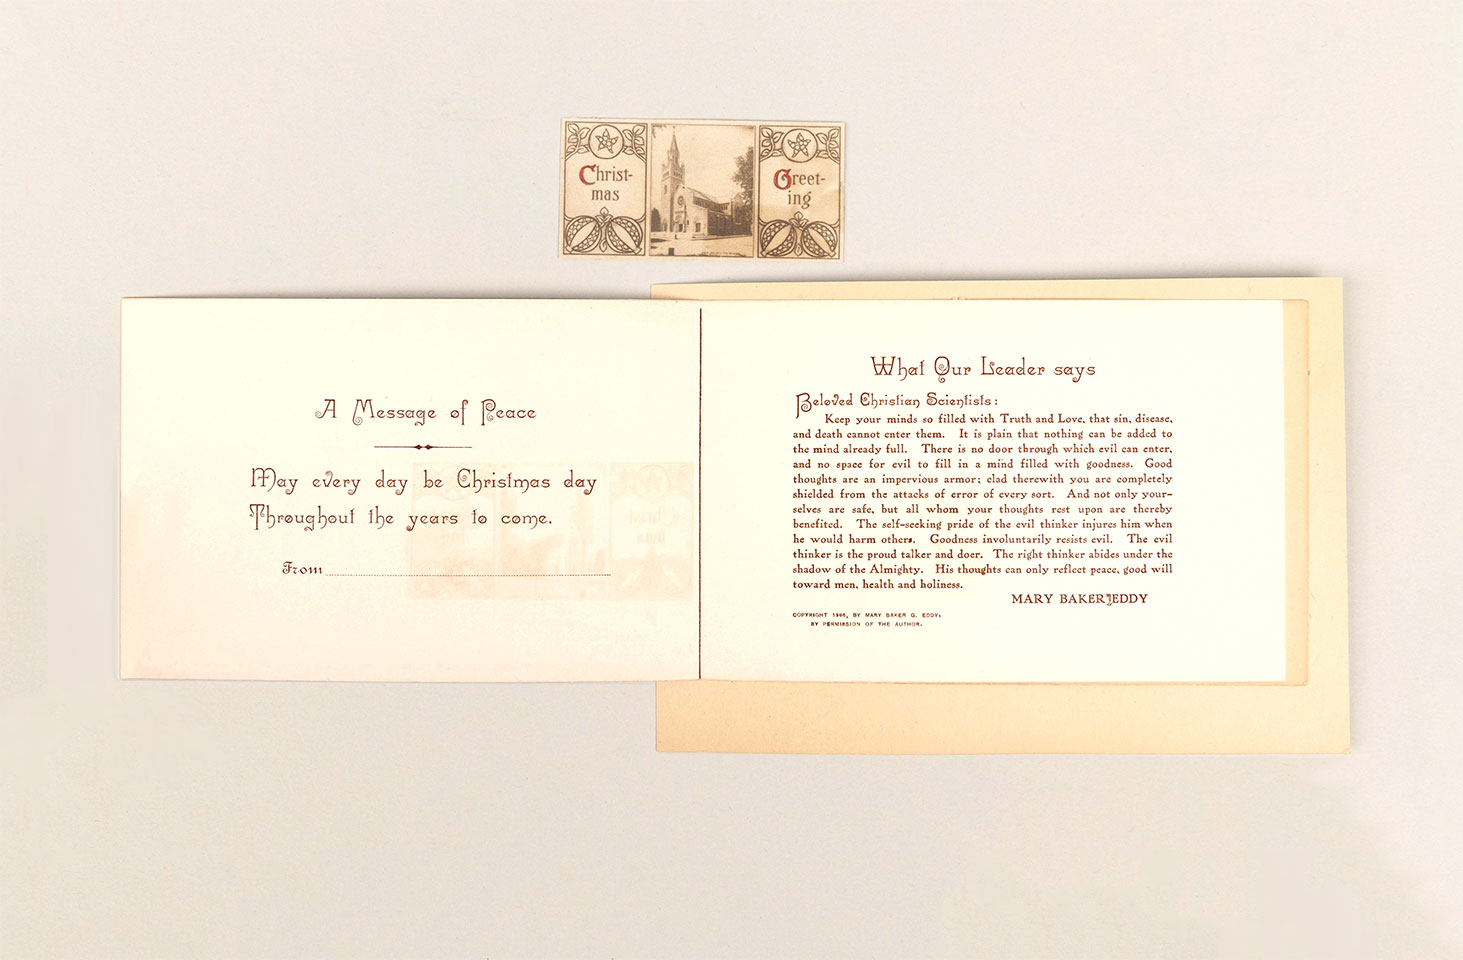 Christ-
mas
Greet-
ing
A Message of Peace
May every day be Christmas day
Throughout the years to come.
From
What Our Leader says
Beloved Christian Scientists:
Keep your minds so filled with Truth and Love, that sin, disease,
and death cannot enter them. It is plain that nothing can be added to
the mind already full. There is no door through which evil can enter,
and no space for evil to fill in a mind filled with goodness. Good
thoughts are an impervious armor; clad therewith you are completely
shielded from the attacks of error of every sort. And not only your-
selves are safe, but all whom your thoughts rest upon are thereby
benefited. The self-seeking pride of the evil thinker injures him when
he would harm others. Goodness involuntarily resists evil. The evil
thinker is the proud talker and doer. The right thinker abides under the
shadow of the Almighty. His thoughts can only reflect peace, good will
toward men, health and holiness.
MARY BAKER EDDY
COPYRIGHT 1909, BY MARY BAKER G. EDDY;
BY PERMISSION OF THE AUTHOR.